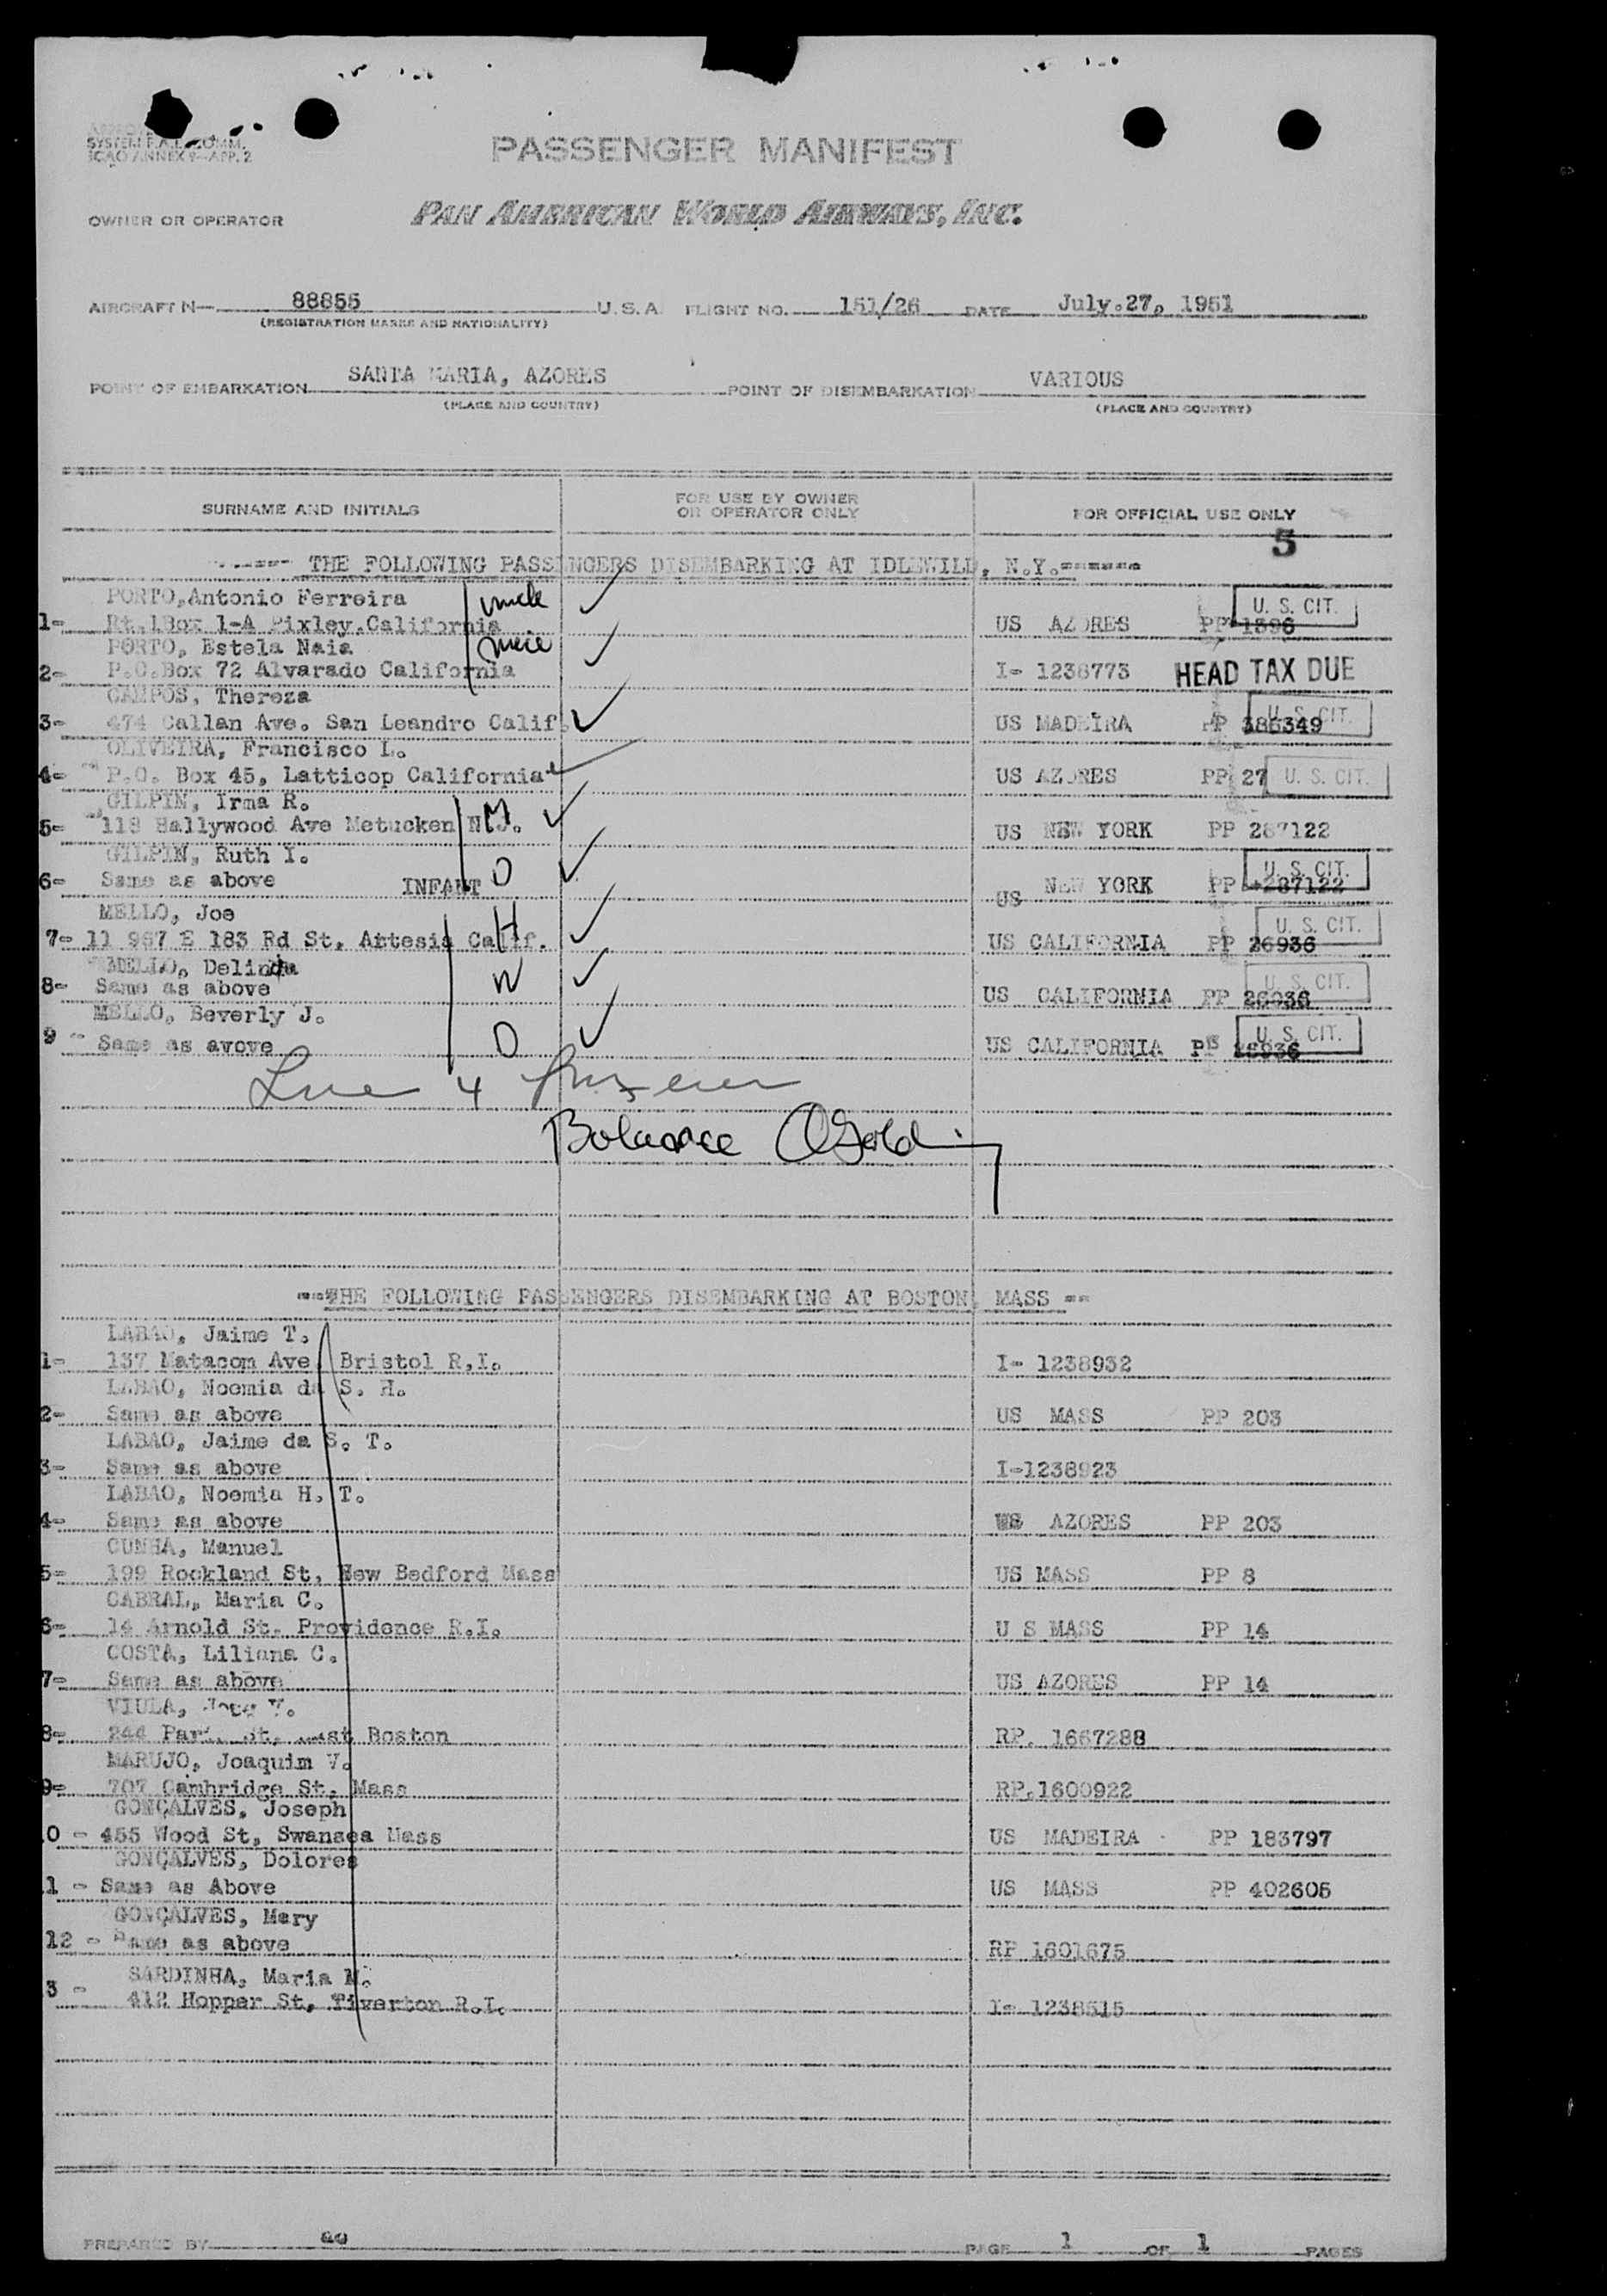 SYSTEM F.A.L. COMM.
ICAO ANNEX 9—APP. 2
PASSENGER MANIFEST
OWNER OR OPERATOR PAN AMERICAN WORLD AIRWAYS, INC.
AIRCRAFT N— 88855 U.S.A. FLIGHT NO. 151/26 DATE July.27, 1951
(REGISTRATION MARKS AND NATIONALITY)
POINT OF EMBARKATION SANTA MARIA, AZORES POINT OF DISEMBARKATION VARIOUS
(PLACE AND COUNTRY) (PLACE AND COUNTRY)
SURNAME AND INITIALS FOR USE BY OWNER OR OPERATOR ONLY FOR OFFICIAL USE ONLY
5
----- THE FOLLOWING PASSENGERS DISEMBARKING AT IDLEWILD, N.Y.------
PORTO,Antonio Ferreira uncle ✓ U. S. CIT.
1- Rt.1Box 1-A Pixley.California US AZORES PP 1396
PORTO, Estela Naia niece ✓
2- P.O.Box 72 Alvarado California I- 1238773 HEAD TAX DUE
CAMPOS, Thereza
3- 474 Callan Ave. San Leandro Calif. ✓ US MADEIRA PP 386349 U. S. CIT.
OLIVEIRA, Francisco L.
4- P.O. Box 45, Latticop California ✓ US AZORES PP 27 U. S. CIT.
GILPIN, Irma R.
5- 118 Hallywood Ave Metucken N.J. M ✓ US NEW YORK PP 287122
GILPIN, Ruth I.
6- Same as above INFANT D ✓ US NEW YORK PP 287122 U. S. CIT.
MELLO, Joe
7- 11 967 E 183 Rd St, Artesia Calif. H ✓ US CALIFORNIA PP 26936 U. S. CIT.
MELLO, Delinda
8- Same as above W ✓ US CALIFORNIA PP 26936 U. S. CIT.
MELLO, Beverly J.
9 - Same as avove D ✓ US CALIFORNIA PP 26936 U. S. CIT.
Line 4
Balance
--THE FOLLOWING PASSENGERS DISEMBARKING AT BOSTON, MASS --
LABAO, Jaime T.
1- 137 Matacom Ave. Bristol R.I. I- 1238932
LABAO, Noemia da S. H.
2- Same as above US MASS PP 203
LABAO, Jaime da S. T.
3- Same as above I-1238923
LABAO, Noemia H. T.
4- Same as above US AZORES PP 203
CUNHA, Manuel
5- 199 Rockland St, New Bedford Mass US MASS PP 8
CABRAL, Maria C.
6- 14 Arnold St. Providence R.I. U S MASS PP 14
COSTA, Liliana C.
7- Same as above US AZORES PP 14
VIULA, V.
8- 244 St, East Boston RP. 1667288
MARUJO, Joaquim V.
9- 707 Cambridge St, Mass RP.1600922
GONÇALVES, Joseph
0 - 455 Wood St, Swansea Mass US MADEIRA PP 183797
GONÇALVES, Dolores
1 - Same as Above US MASS PP 402605
GONÇALVES, Mary
12 - Same as above RP 1601675
SARDINHA, Maria M.
3 - 412 Hopper St, Tiverton R.I. I- 1238515
PREPARED BY ao PAGE 1 OF 1 PAGES